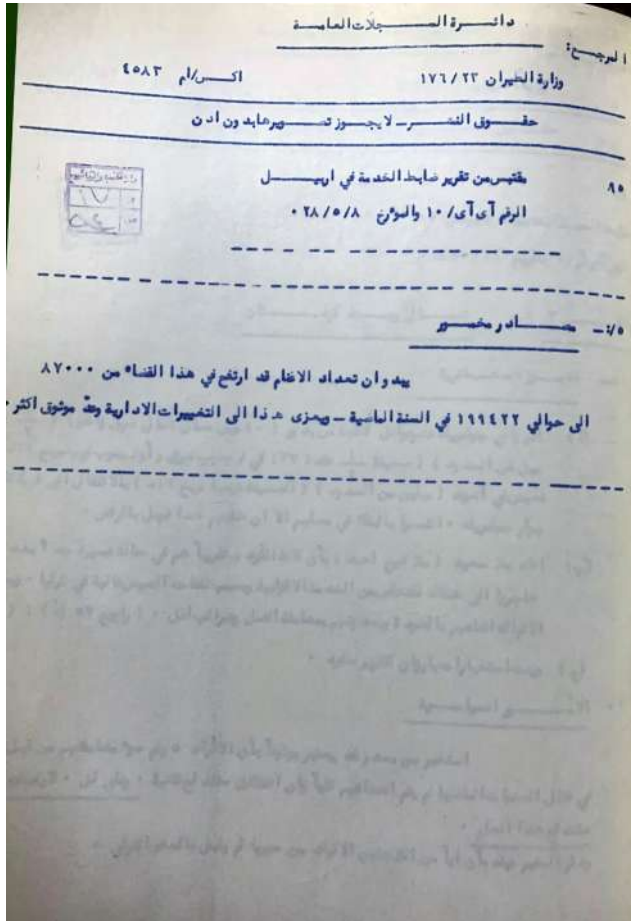 دائرة السجلات العامة
المرجع:
وزارة الطيران ١٧٦/٢٣ اكس/ام ٤٥٨٣
حقوق النشر ـ لا يجوز تصويرها بدون اذن
٨٥ مقتبس من تقرير ضابط الخدمة في اربيل
الرقم آى آى/١٠ والمؤرخ ٢٨/٥/٨ ٠
٥/: ـ مصادر مخمور
يبدو ان تعداد الاغنام قد ارتفع في هذا القضاء من ٨٧٠٠٠
الى حوالي ١٩٩٤٢٢ في السنة الماضية ـ ويعزى هذا الى التغييرات الادارية وعدّ موثوق اكثر ٠